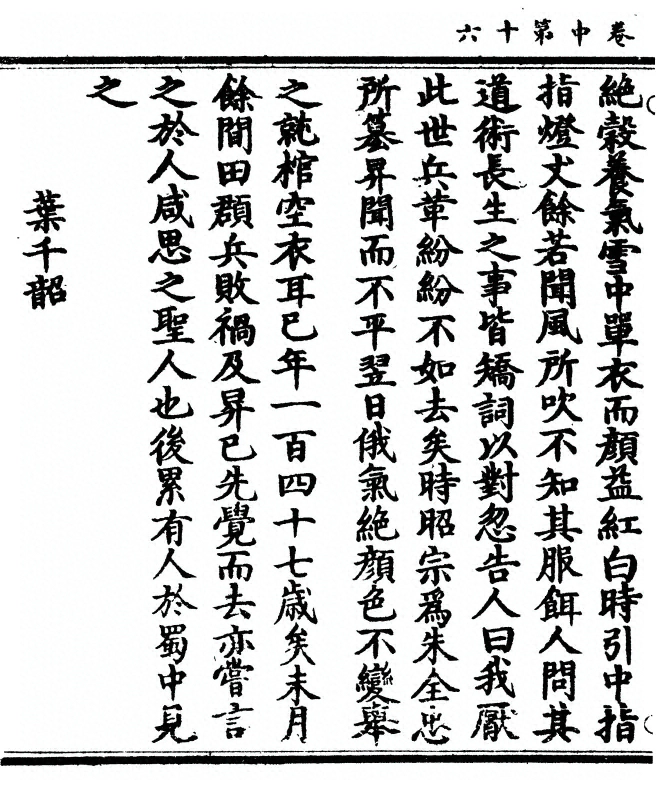 卷中第十六
絕糓養氣雪中單衣而顏益紅白時引中指
指燈丈餘若聞風所吹不知其服餌人問其
道術長生之事皆矯詞以對忽告人曰我厭
此世兵革紛紛不如去矣時昭宗爲朱全忠
所墓昇聞而不平翌日俄氣絕顏色不變舉
之就棺空衣耳已年一百四十七歲矣未月
餘間田頵兵敗禍及昇已先覺而去亦嘗言
之於人咸思之聖人也後累有人於蜀中見
之
葉千韶